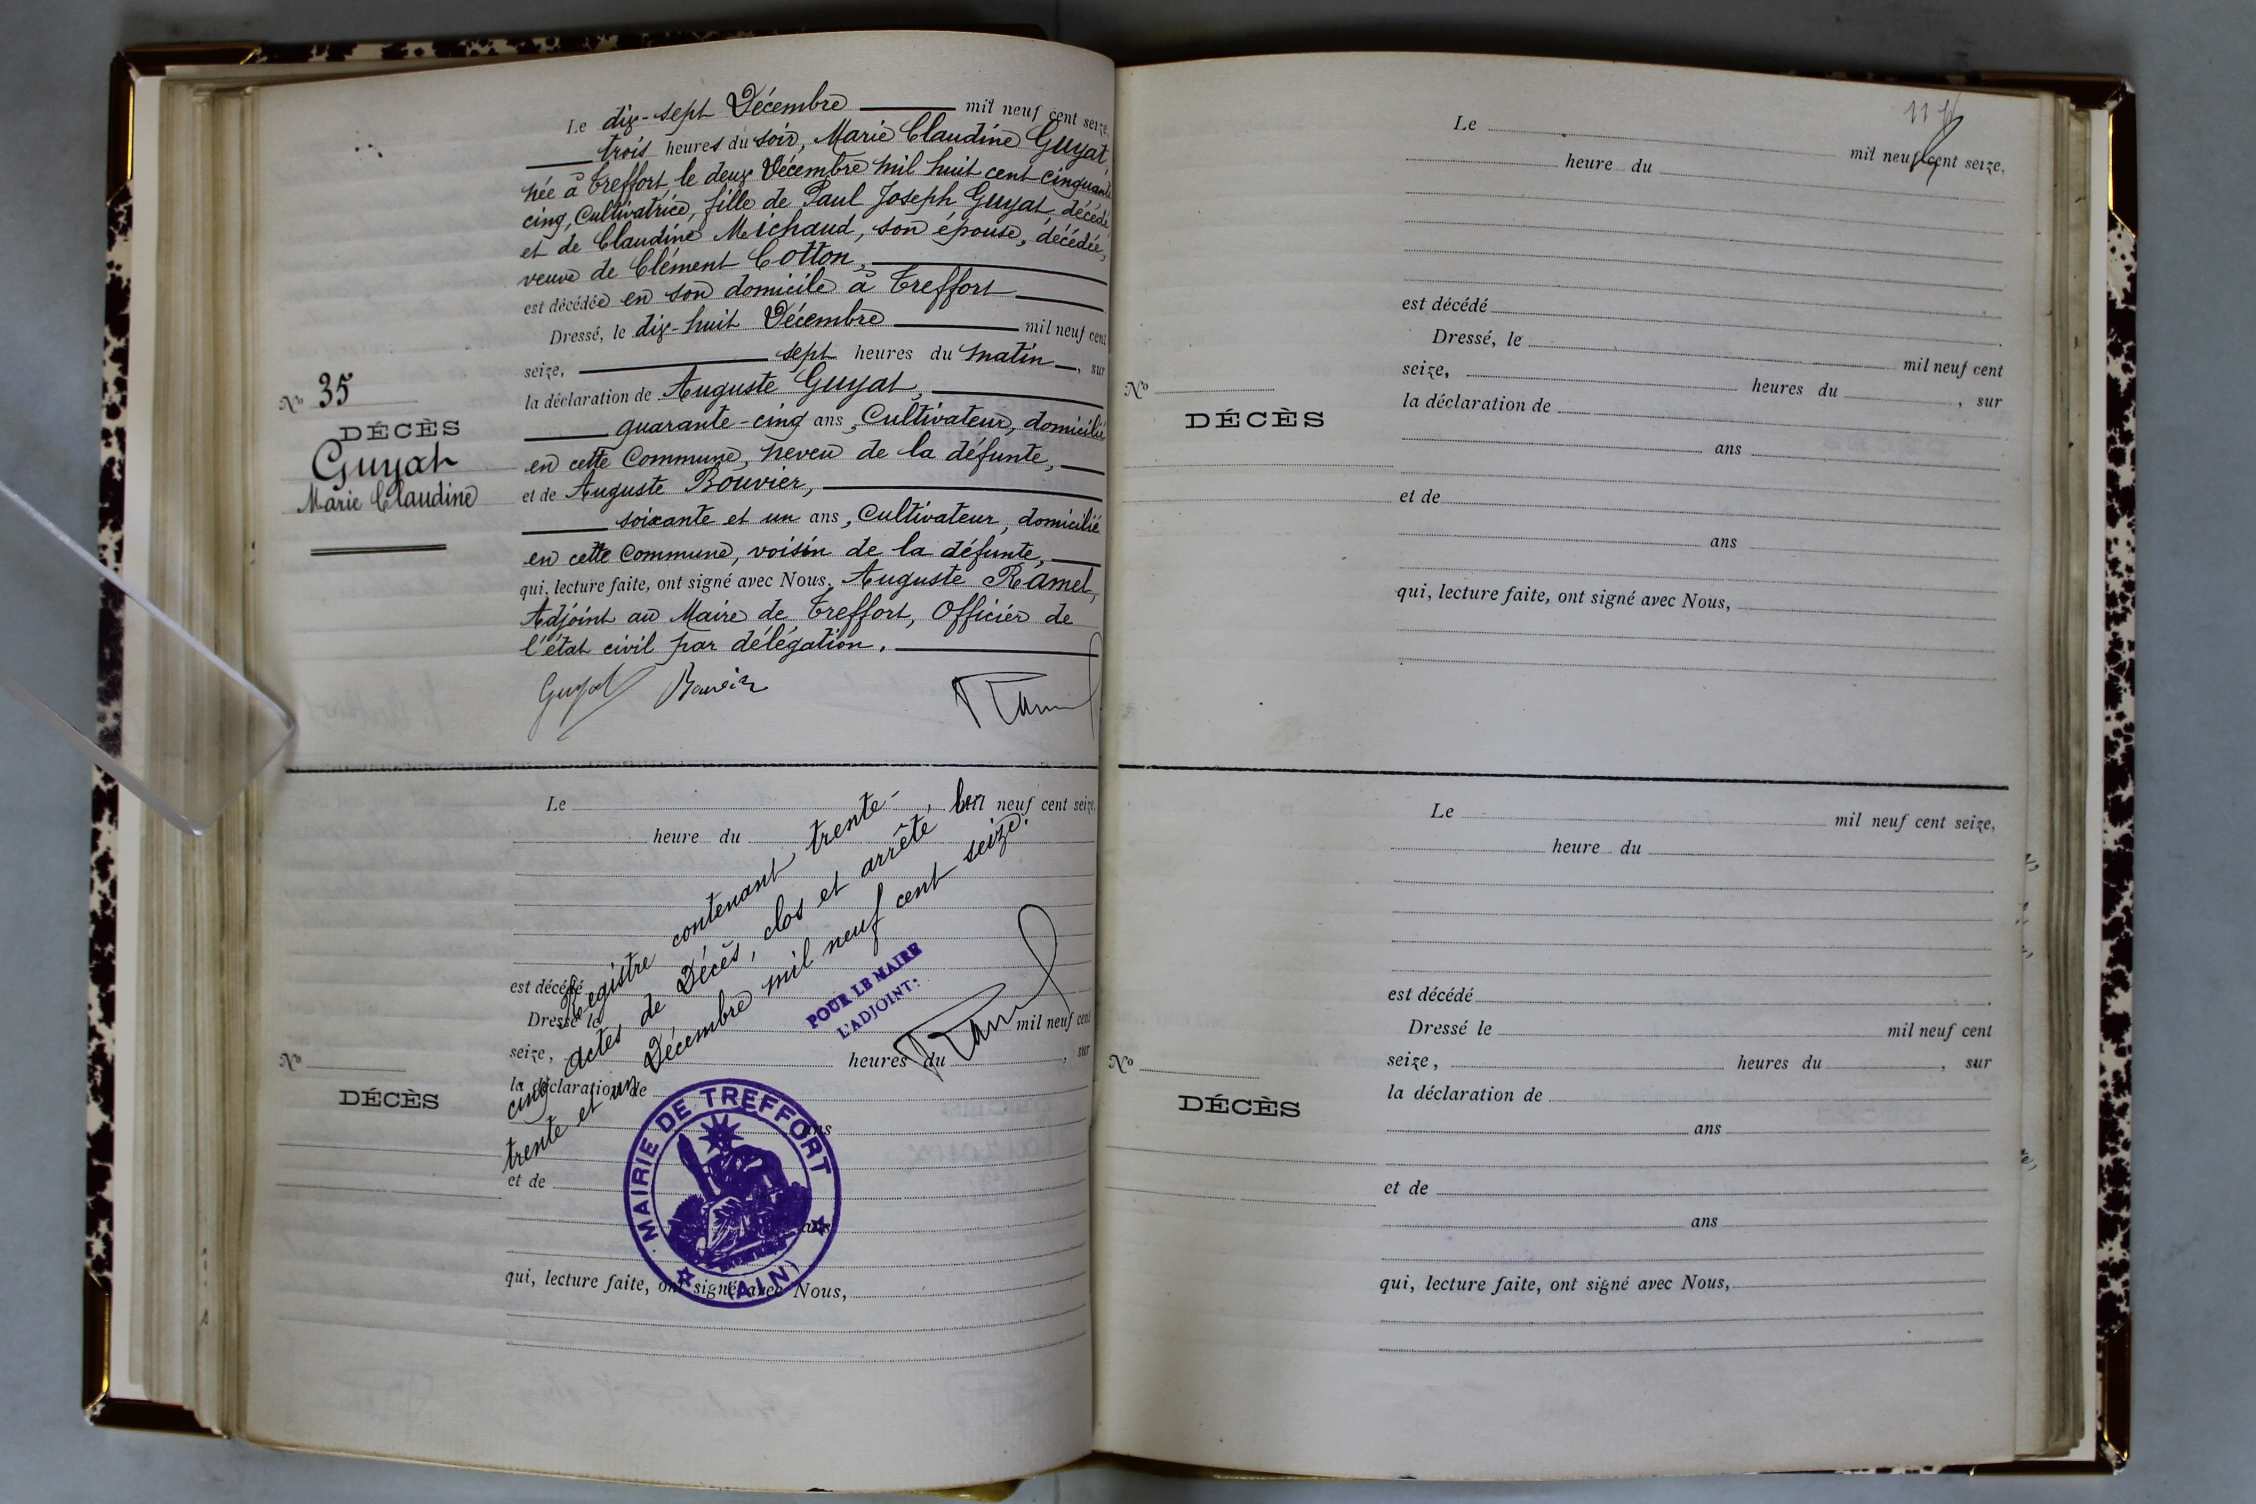 Le dix-sept Décembre mil neuf cent seize,
trois heures du soir, Marie Claudine Guyat,
née à Treffort, le deux Décembre mil huit cent cinquante
cinq, Cultivatrice, fille de Paul Joseph Guyat, décédé
et de Claudine Michaud, son épouse, décédée,
veuve de Clément Cotton,
est décédée en son domicile à Treffort
Dressé, le dix-huit Décembre mil neuf cent
seize, sept heures du matin, sur
la déclaration de Auguste Guyat,
quarante-cinq ans, Cultivateur, domicilié
en cette Commune, neveu de la défunte,
et de Auguste Bouvier,
soixante et un ans, Cultivateur, domicilié
en cette Commune, voisin de la défunte,
qui, lecture faite, ont signé avec Nous, Auguste Ramel,
Adjoint au Maire de Treffort, Officier de
l'état civil par délégation.
Guyat Bouvier Ramel
No 35
DÉCÈS
Guyat
Marie Claudine
Le neuf cent seize,
heure du
est décédé
Dressé le mil neuf cent
seize, heures du , sur
la déclaration de
ans
et de
ans
qui, lecture faite, ont signé avec Nous,
No
DÉCÈS
Registre contenant trente-
cinq actes de Décès, clos et arrêté, le
trente et un Décembre mil neuf cent seize.
POUR LE MAIRE
L'ADJOINT:
Ramel
MAIRIE DE TREFFORT
(AIN)
Le mil neuf cent seize,
heure du
est décédé
Dressé, le mil neuf cent
seize, heures du , sur
la déclaration de
ans
et de
ans
qui, lecture faite, ont signé avec Nous,
No
DÉCÈS
Le mil neuf cent seize,
heure du
est décédé
Dressé le mil neuf cent
seize, heures du , sur
la déclaration de
ans
et de
ans
qui, lecture faite, ont signé avec Nous,
No
DÉCÈS